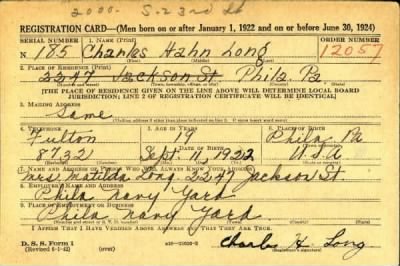 2000. S. 23rd St
REGISTRATION CARD—(Men born on or after January 1, 1922 and on or before June 30, 1924)
SERIAL NUMBER 1. NAME (Print) ORDER NUMBER
N 185 Charles Hahn Long 12057
(First) (Middle) (Last)
2. PLACE OF RESIDENCE (Print)
2247 Jackson St Phila. Pa
[THE PLACE OF RESIDENCE GIVEN ON THE LINE ABOVE WILL DETERMINE LOCAL BOARD
JURISDICTION; LINE 2 OF REGISTRATION CERTIFICATE WILL BE IDENTICAL]
3. MAILING ADDRESS
Same
4. TELEPHONE 5. AGE IN YEARS 6. PLACE OF BIRTH
Fulton 19 Phila. Pa
DATE OF BIRTH
8732 Sept. 11 1922 U.S.A
7. NAME AND ADDRESS OF PERSON WHO WILL ALWAYS KNOW YOUR ADDRESS
Mrs. Matilda Long 2247 Jackson St
8. EMPLOYER'S NAME AND ADDRESS
Phila Navy Yard
9. PLACE OF EMPLOYMENT OR BUSINESS
Phila Navy Yard.
I AFFIRM THAT I HAVE VERIFIED ABOVE ANSWERS AND THAT THEY ARE TRUE.
D. S. S. Form 1
Charles H. Long